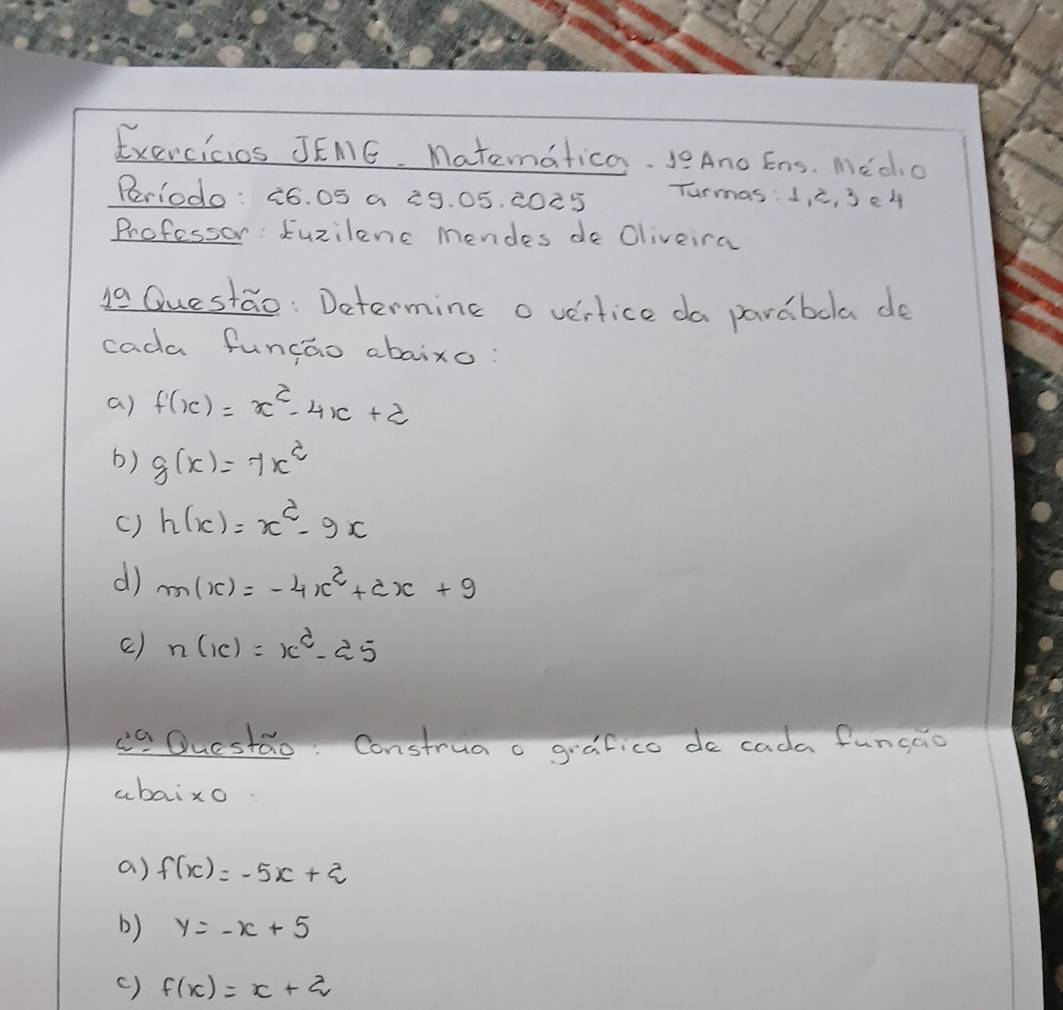 Exercícios JEMG - Matemática. 1º Ano Ens. Médio
Período: 26.05 a 29.05.2025 Turmas: 1, 2, 3 e 4
Professor: Euzilene Mendes de Oliveira
1ª Questão: Determine o vértice da parábola de
cada função abaixo:
a) f(x) = x² - 4x + 2
b) g(x) = 7x²
c) h(x) = x² - 9x
d) m(x) = -4x² + 2x + 9
e) n(x) = x² - 25
2ª Questão: Construa o gráfico de cada função
abaixo.
a) f(x) = -5x + 2
b) y = -x + 5
c) f(x) = x + 2